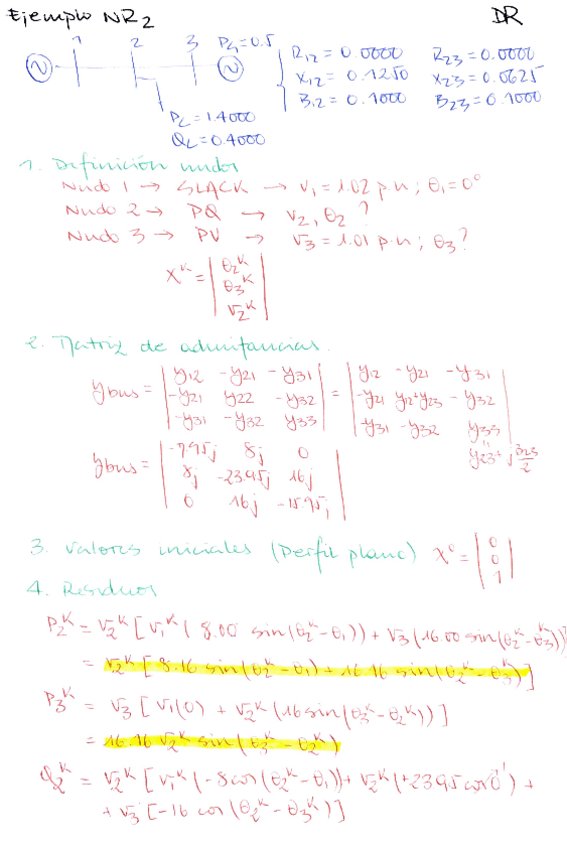 Ejemplo NR2 DR
1 2 3 PG = 0.5
R12 = 0.0000 R23 = 0.0000
X12 = 0.1250 X23 = 0.0625
B12 = 0.1000 B23 = 0.1000
PL = 1.4000
QL = 0.4000
1. Definición nudos
Nudo 1 → SLACK → V1 = 1.02 p.u ; θ1 = 0°
Nudo 2 → PQ → V2, θ2 ?
Nudo 3 → PV → V3 = 1.01 p.u ; θ3 ?
X^K = | θ2^K |
| θ3^K |
| V2^K |
2. Matriz de admitancias.
Ybus = | y12 -y21 -y31 | = | y12 -y21 -y31 |
| -y21 y22 -y32 | | -y21 y12+y23 -y32 |
| -y31 -y32 y33 | | -y31 -y32 y33 |
y23 + j B23/2
Ybus = | -7.95j 8j 0 |
| 8j -23.95j 16j |
| 0 16j -15.95j |
3. Valores iniciales (Perfil plano) X^0 = | 0 |
| 0 |
| 1 |
4. Residuos
P2^K = V2^K [ V1^K ( 8.00 sin(θ2^K - θ1)) + V3 (16.00 sin(θ2^K - θ3^K))]
= V2^K [ 8.16 sin(θ2^K - θ1) + 16.16 sin(θ2^K - θ3^K) ]
P3^K = V3 [ V1(0) + V2^K (16 sin(θ3^K - θ2^K)) ]
= 16.16 V2^K sin(θ3^K - θ2^K)
Q2^K = V2^K [ V1^K (-8 cos(θ2^K - θ1)) + V2^K (+23.95 cos 0) +
+ V3 [-16 cos (θ2^K - θ3^K) ]